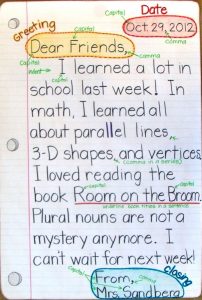 Capital
Date
Greeting
Oct. 29, 2012
Capital
comma
Dear Friends,
Capital
comma
indent
I learned a lot in
capital
school last week! In
math, I learned all
about parallel lines,
3-D shapes, and vertices.
(comma in a series)
I loved reading the
capital
capital
book Room on the Broom.
underline book titles in a sentence
Plural nouns are not a
mystery anymore. I
can't wait for next week!
closing
Capital
From,
comma
Mrs. Sandberg